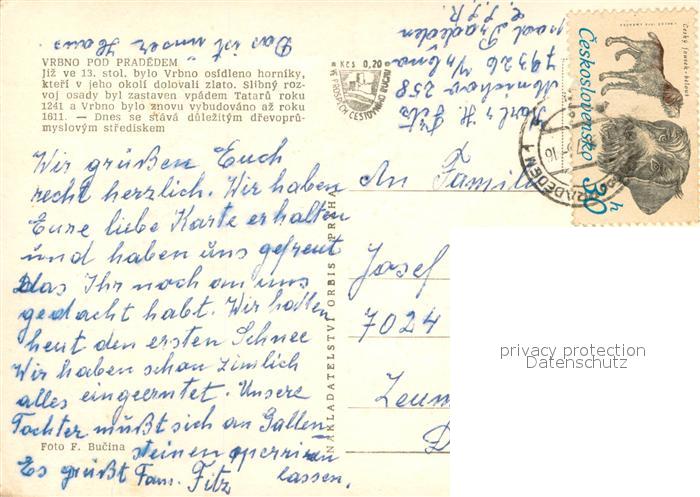 Das ist unser Haus
VRBNO POD PRADĚDEM
Již ve 13. stol. bylo Vrbno osídleno horníky,
kteří v jeho okolí dolovali zlato. Slibný roz-
voj osady byl zastaven vpádem Tatarů roku
1241 a Vrbno bylo znovu vybudováno až roku
1611. — Dnes se stává důležitým dřevoprů-
myslovým střediskem
Wir grüßen Euch
recht herzlich. Wir haben
Eure liebe Karte erhalten
und haben uns gefreut
das Ihr noch an uns
gedacht habt. Wir hatten
heut den ersten Schnee
Wir haben schon zimlich
alles eingeerntet. Unsere
Tochter müßt sich an Gallen
steinen operriren
lassen.
Es grüßt Fam. Fitz
Foto F. Bučina
NAKLADATELSTVÍ ORBIS PRAHA
Kčs 0,20
VE PROSPĚCH CESTOVNÍHO RUCHU
Karl & H. Fitz
258
79326 Vrbno
pod Pradědem
Č.S.S.R.
An Famili
Josef
7024
Zeum
D
Československo
30 h
Český fousek
PRADĚDEM 1
privacy protection
Datenschutz